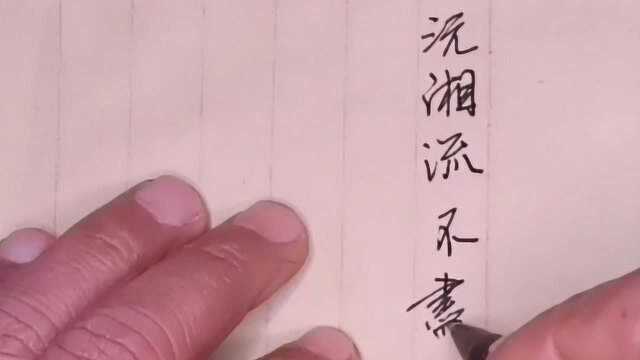 沅湘流不盡